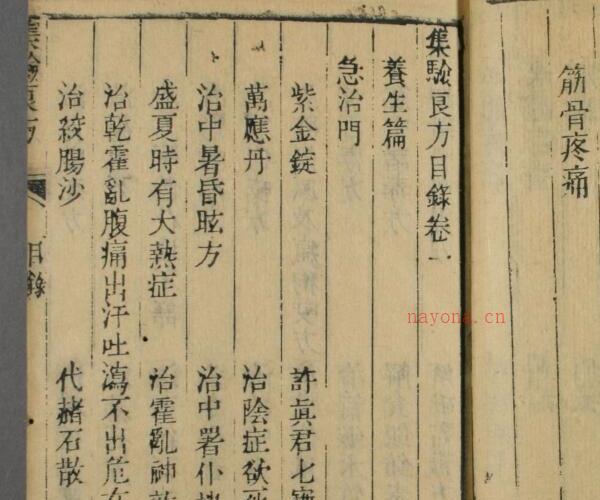 筋骨疼痛
集驗良方目錄卷一
養生篇
急治門
紫金錠 許眞君七寶
萬應丹 治陰症欲死
治中暑昏眩方 治中署仆
盛夏時有大熱症 治霍亂神效
治乾霍亂腹痛出汗吐瀉不出危在
治絞腸沙 代赭石散
集驗良方 目錄
nayona.cn